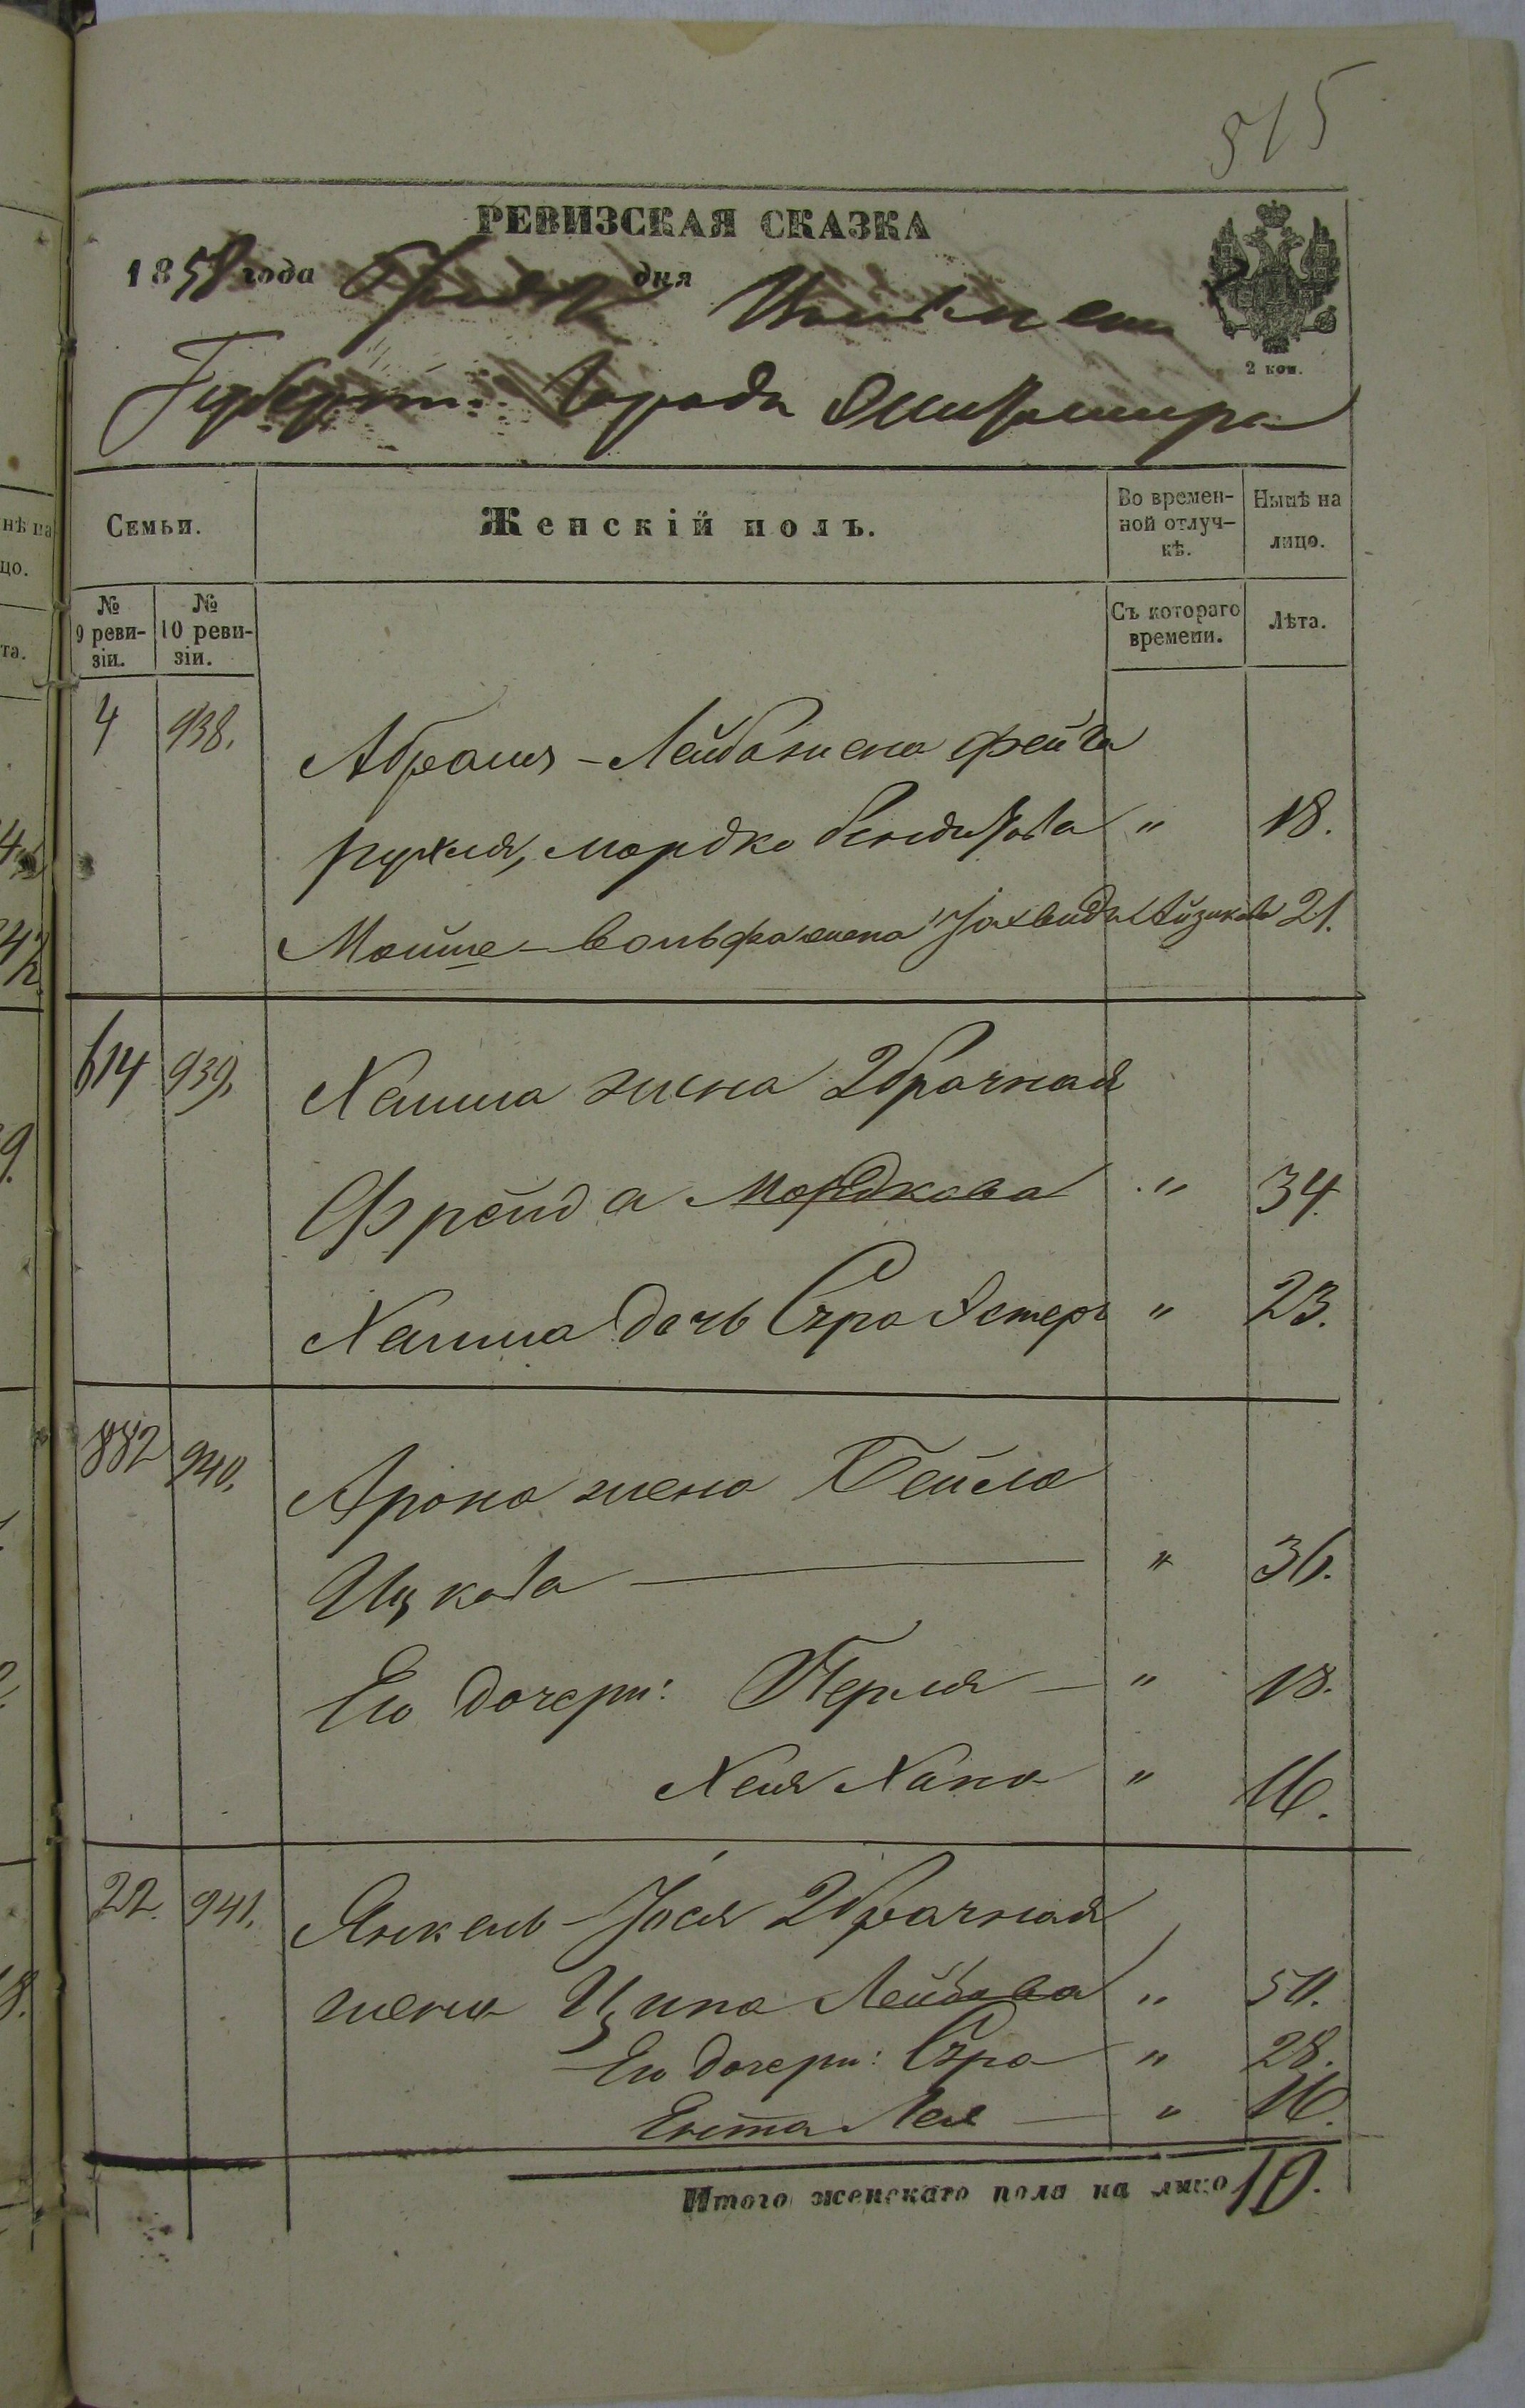 515
РЕВИЗСКАЯ СКАЗКА
1858 года дня
2 коп.
Губерніи Города Житомира
Семьи.
Женскій полъ.
Во времен-
ной отлуч-
кѣ.
Нынѣ на
лицо.
№
9 реви-
зіи.
№
10 реви-
зіи.
Съ котораго
времени.
Лѣта.
4 938. Абрамъ-Лейба жена Фейга
Рухля, Мордко " 18.
Мойше-Вольфа жена Іохвида Айзикова 21.
614 939. Хаима жена 2 брачная
Фрейда Мордкова " 34
Хаима дочь Сура Эстеръ " 23.
882 940. Арона жена Бейла
Ицкова " 36.
Его дочери: Перля " 18.
Хая Хана " 16.
22. 941. Янкель-Іося 2 брачная
жена Ципа Лейбова " 50.
Его дочери: Сура " 28.
Ента Лея " 16.
Итого женскаго пола на лицо 10.